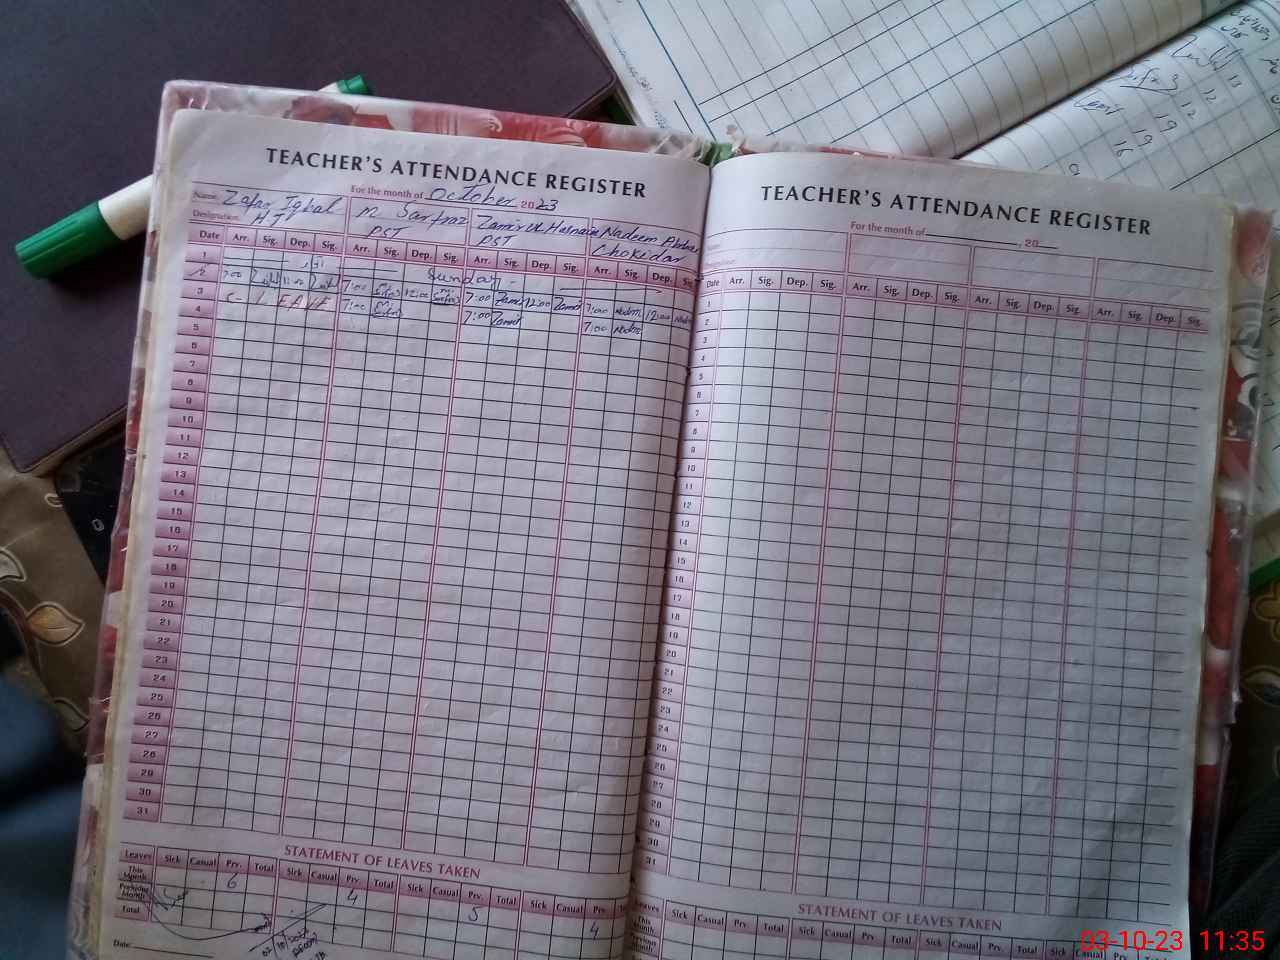 TEACHER'S ATTENDANCE REGISTER
Name: Zafar Iqbal For the month of October 2023
M. Sarfraz Zamir Ul Hasnain Nadeem Abbas
Designation: HT PST PST Chokidar
Date Arr. Sig. Dep. Sig. Arr. Sig. Dep. Sig. Arr. Sig. Dep. Sig. Arr. Sig. Dep. Sig.
1 Sunday
2 7:00 12:00 7:00 12:00 7:00 Zamir 12:00 Zamir 7:00 Nadm 12:00
3 C- LEAVE 7:00 7:00 Zamir 7:00 Nadm
4
5
6
7
8
9
10
11
12
13
14
15
16
17
18
19
20
21
22
23
24
25
26
27
28
29
30
31
STATEMENT OF LEAVES TAKEN
Leaves Sick Casual Prv. Total Sick Casual Prv. Total Sick Casual Prv. Total Sick Casual Prv.
This Month 6 4 5 4
Previous Month
Total
Date:
TEACHER'S ATTENDANCE REGISTER
For the month of , 20
Date Arr. Sig. Dep. Sig. Arr. Sig. Dep. Sig. Arr. Sig. Dep. Sig. Arr. Sig. Dep. Sig.
1
2
3
4
5
6
7
8
9
10
11
12
13
14
15
16
17
18
19
20
21
22
23
24
25
26
27
28
29
30
31
STATEMENT OF LEAVES TAKEN
Leaves Sick Casual Prv. Total Sick Casual Prv. Total Sick Casual Prv. Total Sick Casual Prv. Total
This Month
Previous Month
13
12
12
19
19
16
03-10-23 11:35